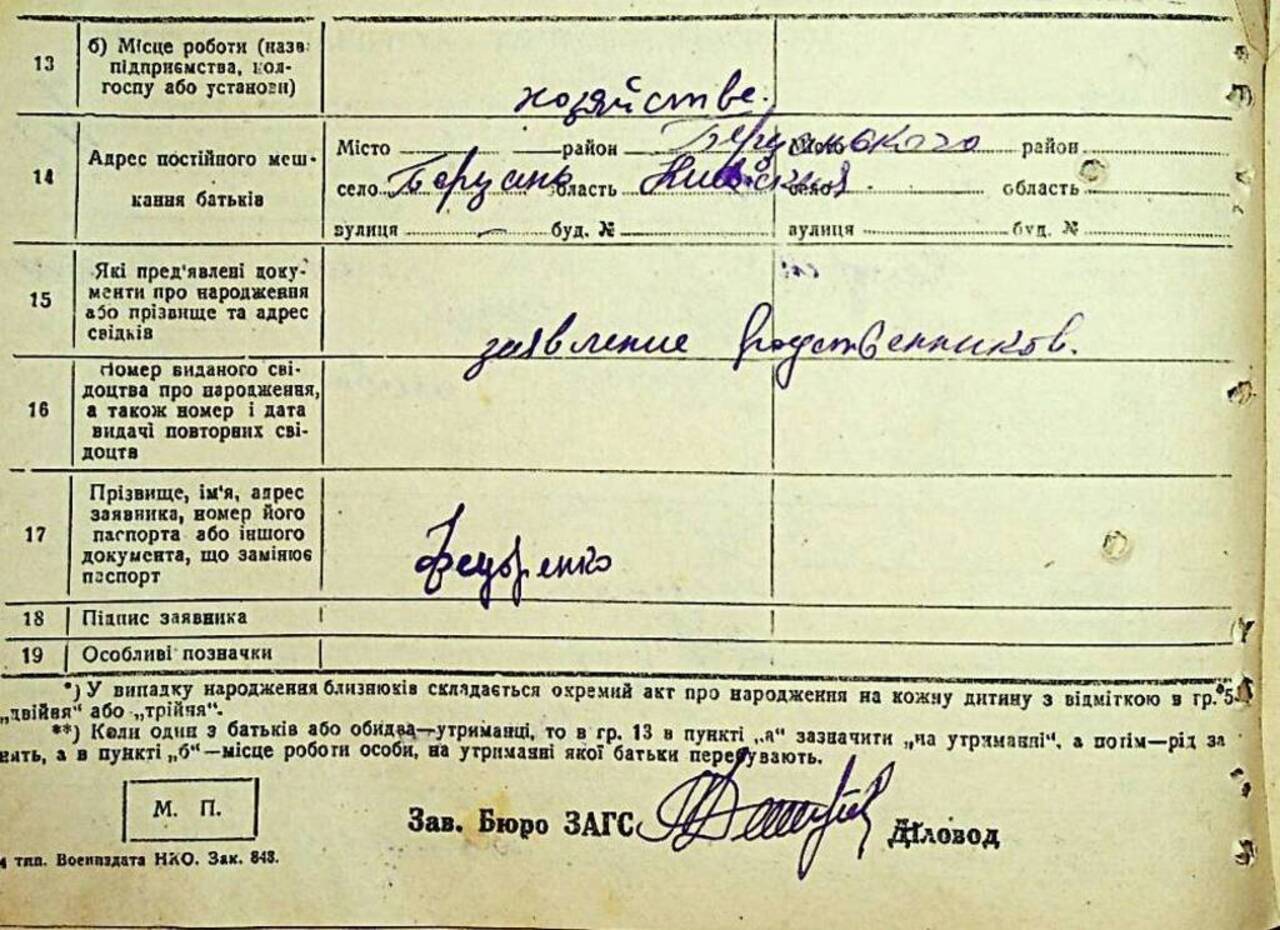 13
б) Місце роботи (назв
підприємства, кол-
госпу або установи)
хозяйстве.
14
Адрес постійного меш-
кання батьків
Місто район Березанського район
село Березань область Київськ село область
вулиця буд. № вулиця буд. №
15
Які пред'явлені доку-
менти про народження
або прізвище та адрес
свідків
заявление родственников.
16
Номер виданого сві-
доцтва про народження,
а також номер і дата
видачі повторних сві-
доцтв
17
Прізвище, ім'я, адрес
заявника, номер його
паспорта або іншого
документа, що замінює
паспорт
18 Підпис заявника
19 Особливі позначки
*) У випадку народження близнюків складається окремий акт про народження на кожну дитину з відміткою в гр. 5
„двійня“ або „трійня“.
**) Коли один з батьків або обидва—утриманці, то в гр. 13 в пункті „а“ зазначити „на утриманні“, а потім—рід за
нять, а в пункті „б“—місце роботи особи, на утриманні якої батьки перебувають.
М. П.
Зав. Бюро ЗАГС Діловод
4 тип. Воениздата НКО. Зак. 848.